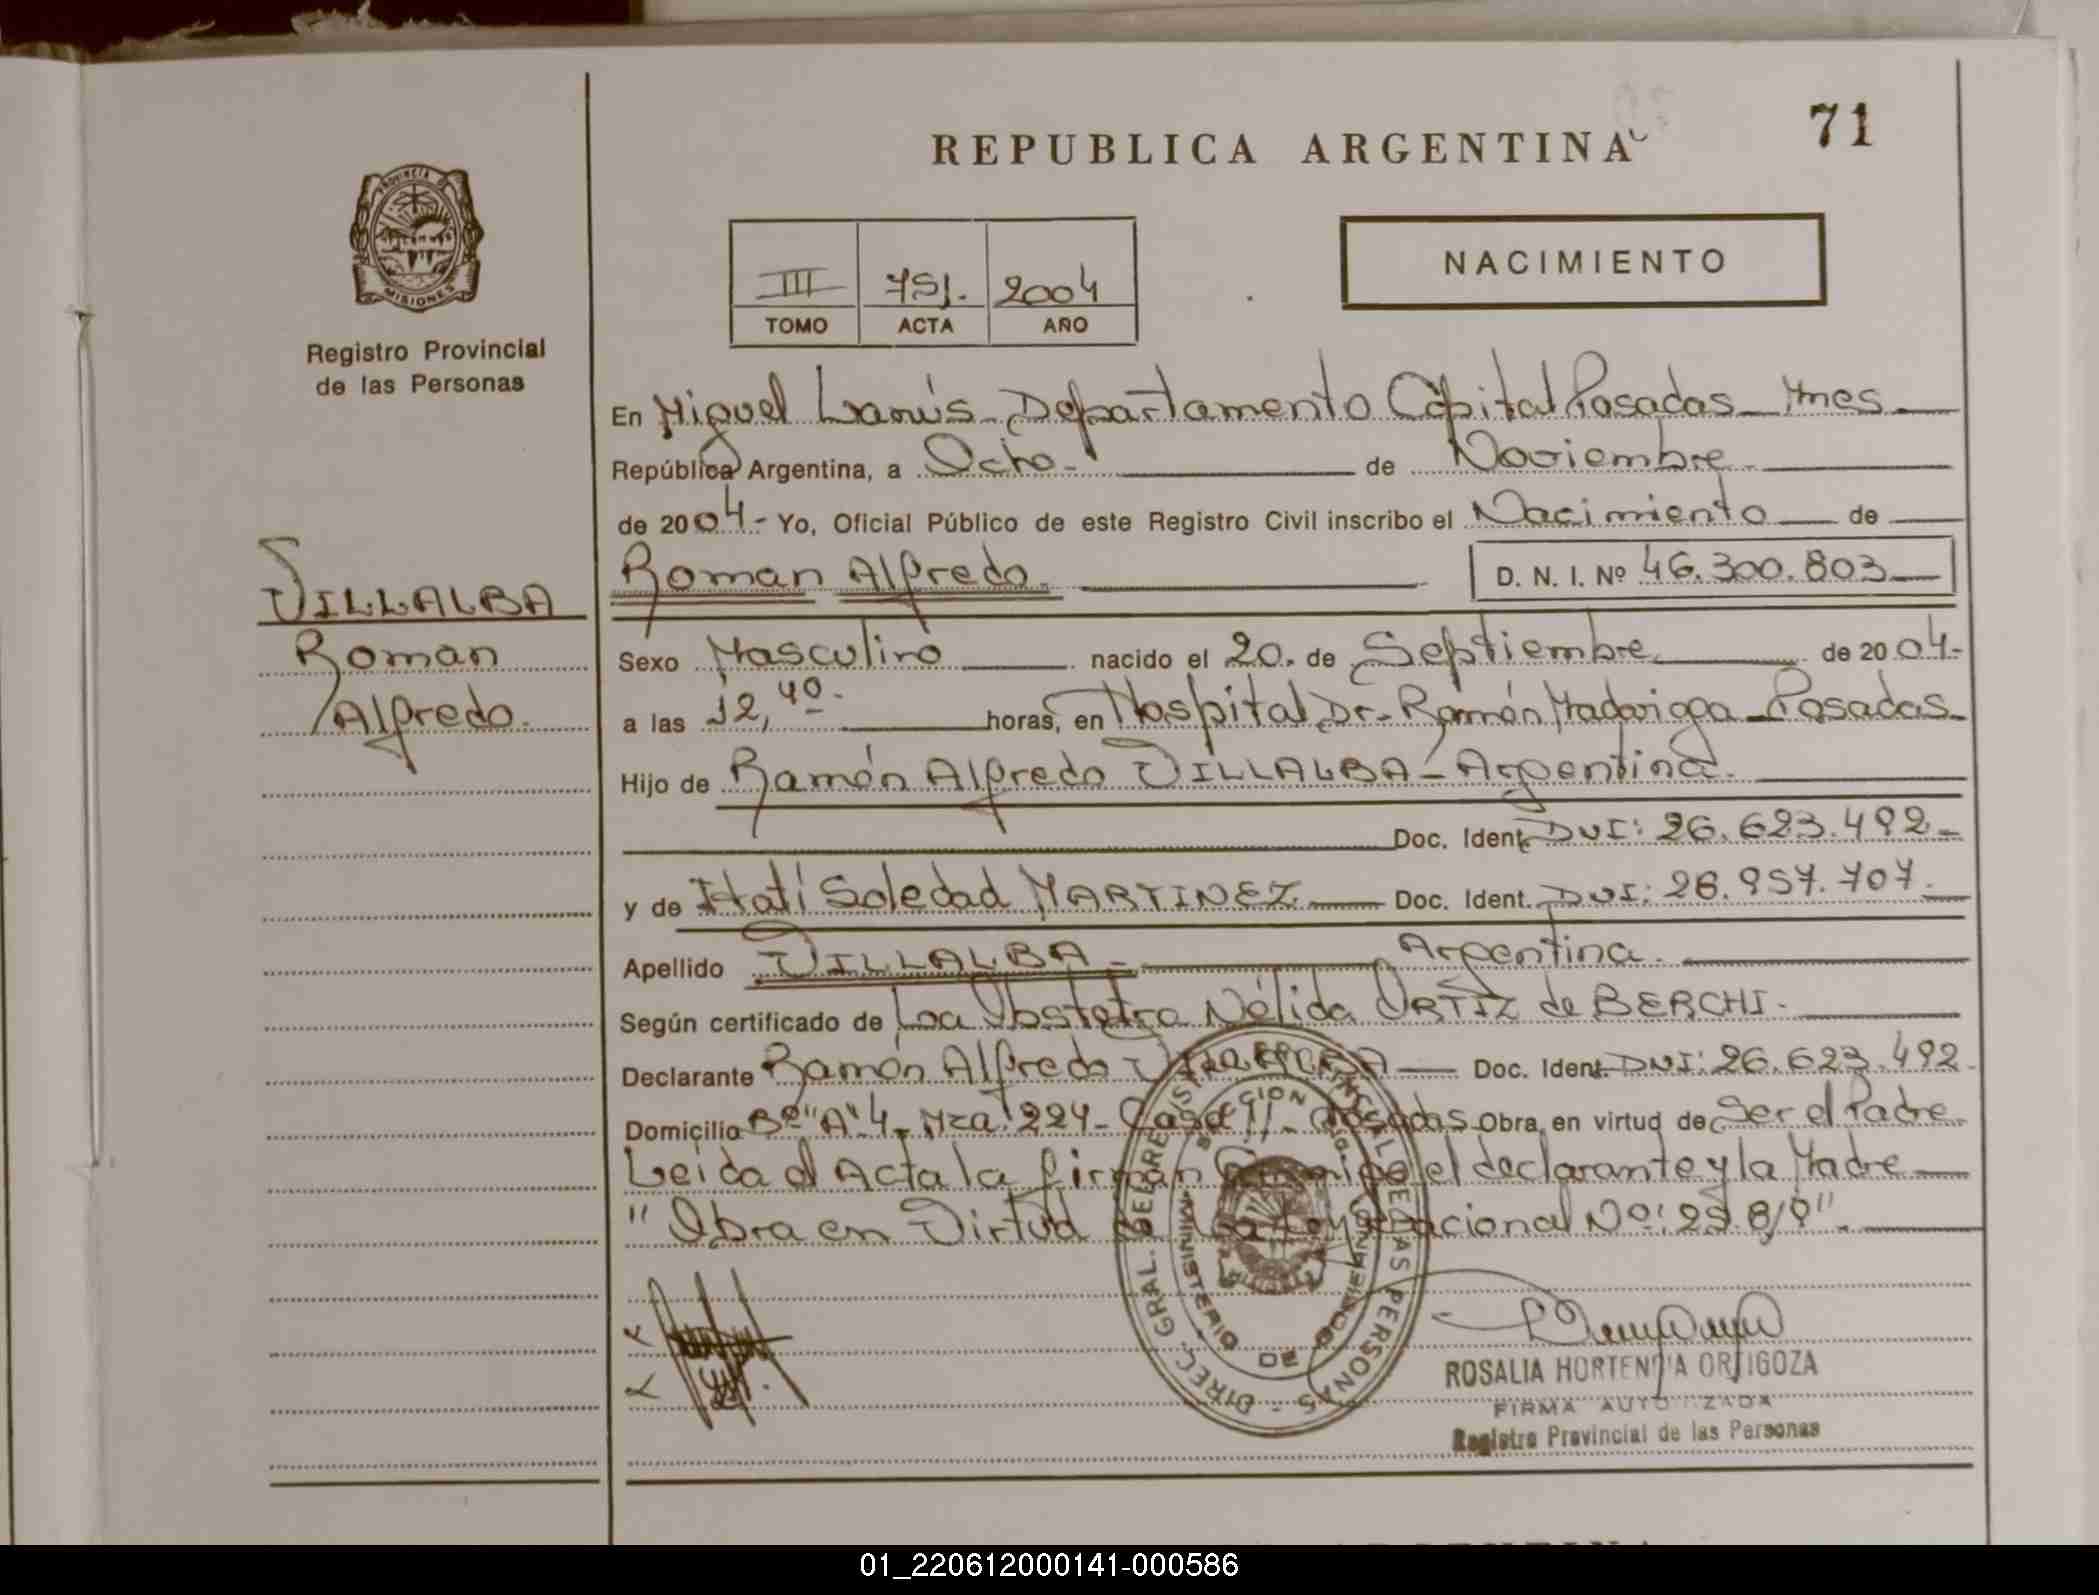 71
REPUBLICA ARGENTINA
PROVINCIA DE
MISIONES
Registro Provincial
de las Personas
NACIMIENTO
III 751. 2004
TOMO ACTA AÑO
En Miguel Lanús - Departamento Capital Posadas - Mnes
República Argentina, a Ocho - de Noviembre
de 2004.- Yo, Oficial Público de este Registro Civil inscribo el Nacimiento de
Roman Alfredo. D. N. I. Nº 46.300.803
VILLALBA
Roman
Alfredo.
Sexo Masculino nacido el 20. de Septiembre de 2004.-
a las 12,40. horas, en Hospital Dr. Ramón Madariaga - Posadas
Hijo de Ramón Alfredo VILLALBA - Argentina.
Doc. Ident. DNI: 26.623.492
y de Itatí Soledad MARTINEZ Doc. Ident. DNI: 26.957.707.
Apellido VILLALBA - Argentina.
Según certificado de La Obstetra Nélida ORTIZ de BERCHI.
Declarante Ramón Alfredo VILLALBA Doc. Ident. DNI: 26.623.492
Domicilio Bº "A" 4 - Mza. 224 - Casa 11 - Posadas Obra, en virtud de Ser el Padre
Leída el Acta la firman Conmigo el declarante y la Madre
" Obra en Virtud de la Ley Nacional Nº:
DIREC. GRAL. DEL REGISTRO PROVINCIAL DE LAS PERSONAS
MINISTERIO DE GOBIERNO
ROSALIA HORTENCIA ORTIGOZA
FIRMA AUTORIZADA
Registro Provincial de las Personas
01_220612000141-000586